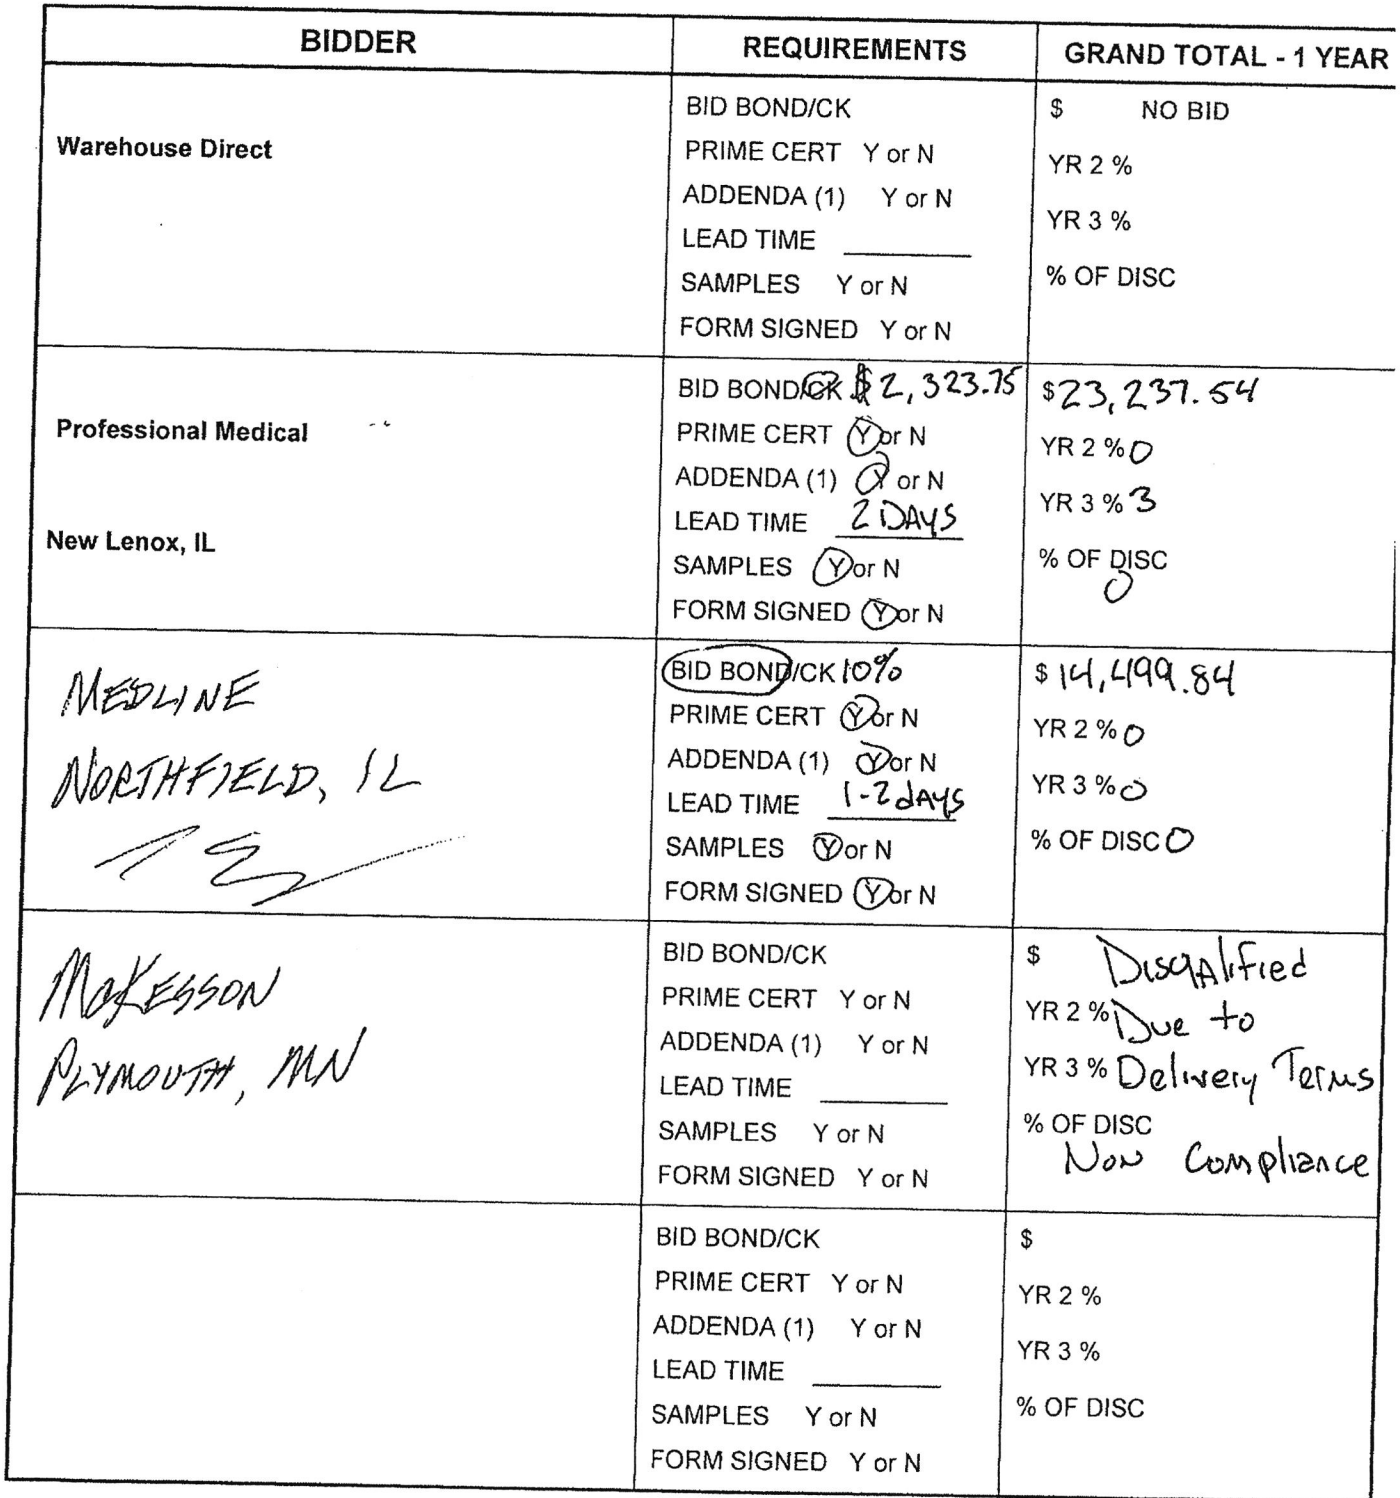 BIDDER REQUIREMENTS GRAND TOTAL - 1 YEAR
Warehouse Direct
BID BOND/CK
PRIME CERT Y or N
ADDENDA (1) Y or N
LEAD TIME ________
SAMPLES Y or N
FORM SIGNED Y or N
$ NO BID
YR 2 %
YR 3 %
% OF DISC
Professional Medical
New Lenox, IL
BID BOND/CK $2,323.75
PRIME CERT Y or N
ADDENDA (1) Y or N
LEAD TIME 2 DAYS
SAMPLES Y or N
FORM SIGNED Y or N
$23,237.54
YR 2 % 0
YR 3 % 3
% OF DISC
0
MEDLINE
NORTHFIELD, IL
BID BOND/CK 10%
PRIME CERT Y or N
ADDENDA (1) Y or N
LEAD TIME 1-2 dAYS
SAMPLES Y or N
FORM SIGNED Y or N
$ 14,499.84
YR 2 % 0
YR 3 % 0
% OF DISC 0
McKESSON
PLYMOUTH, MN
BID BOND/CK
PRIME CERT Y or N
ADDENDA (1) Y or N
LEAD TIME ________
SAMPLES Y or N
FORM SIGNED Y or N
$ DisqAlified
YR 2 % Due to
YR 3 % Delivery Terms
% OF DISC
Non Compliance
BID BOND/CK
PRIME CERT Y or N
ADDENDA (1) Y or N
LEAD TIME ________
SAMPLES Y or N
FORM SIGNED Y or N
$
YR 2 %
YR 3 %
% OF DISC